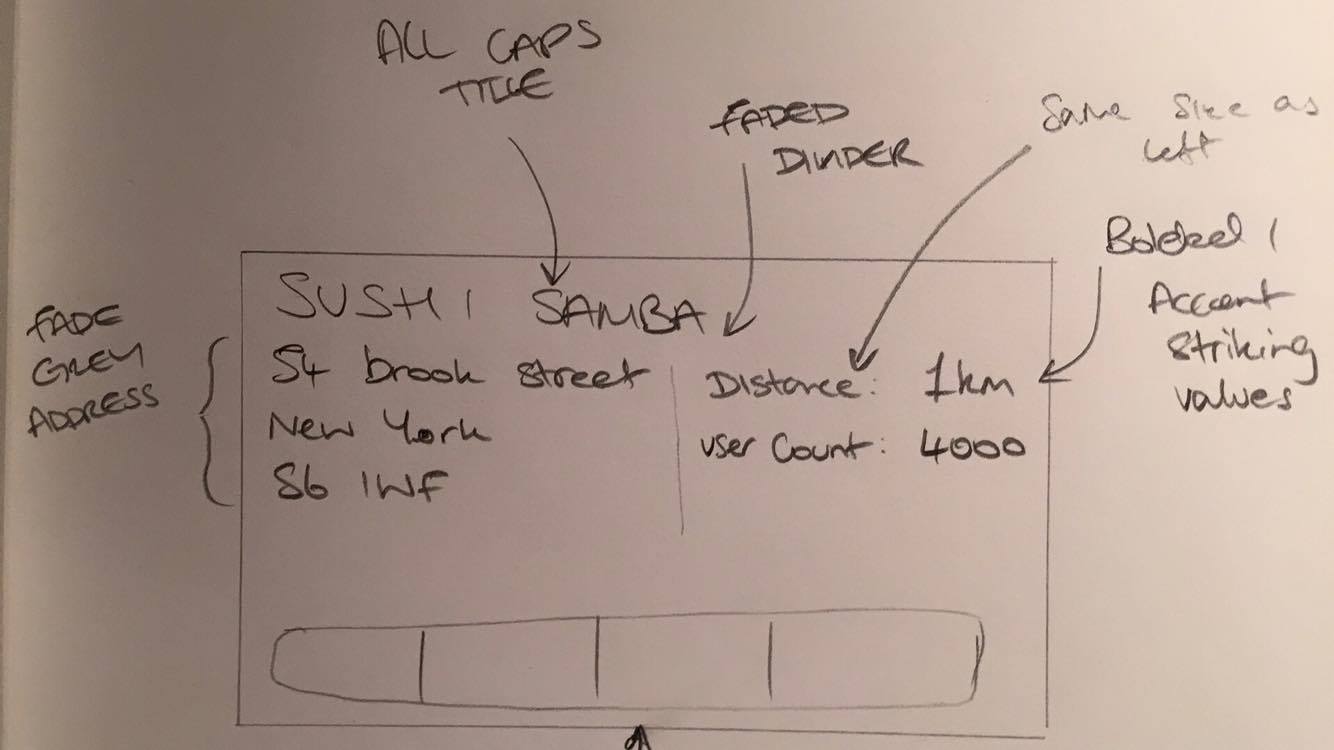 ALL CAPS
TITLE
FADED
DIVIDER
Same size as
left
Bolded /
Accent
striking
values
FADE
GREY
ADDRESS
SUSHI SAMBA
54 brook street
New York
S6 1WF
Distance: 1km
User Count: 4000